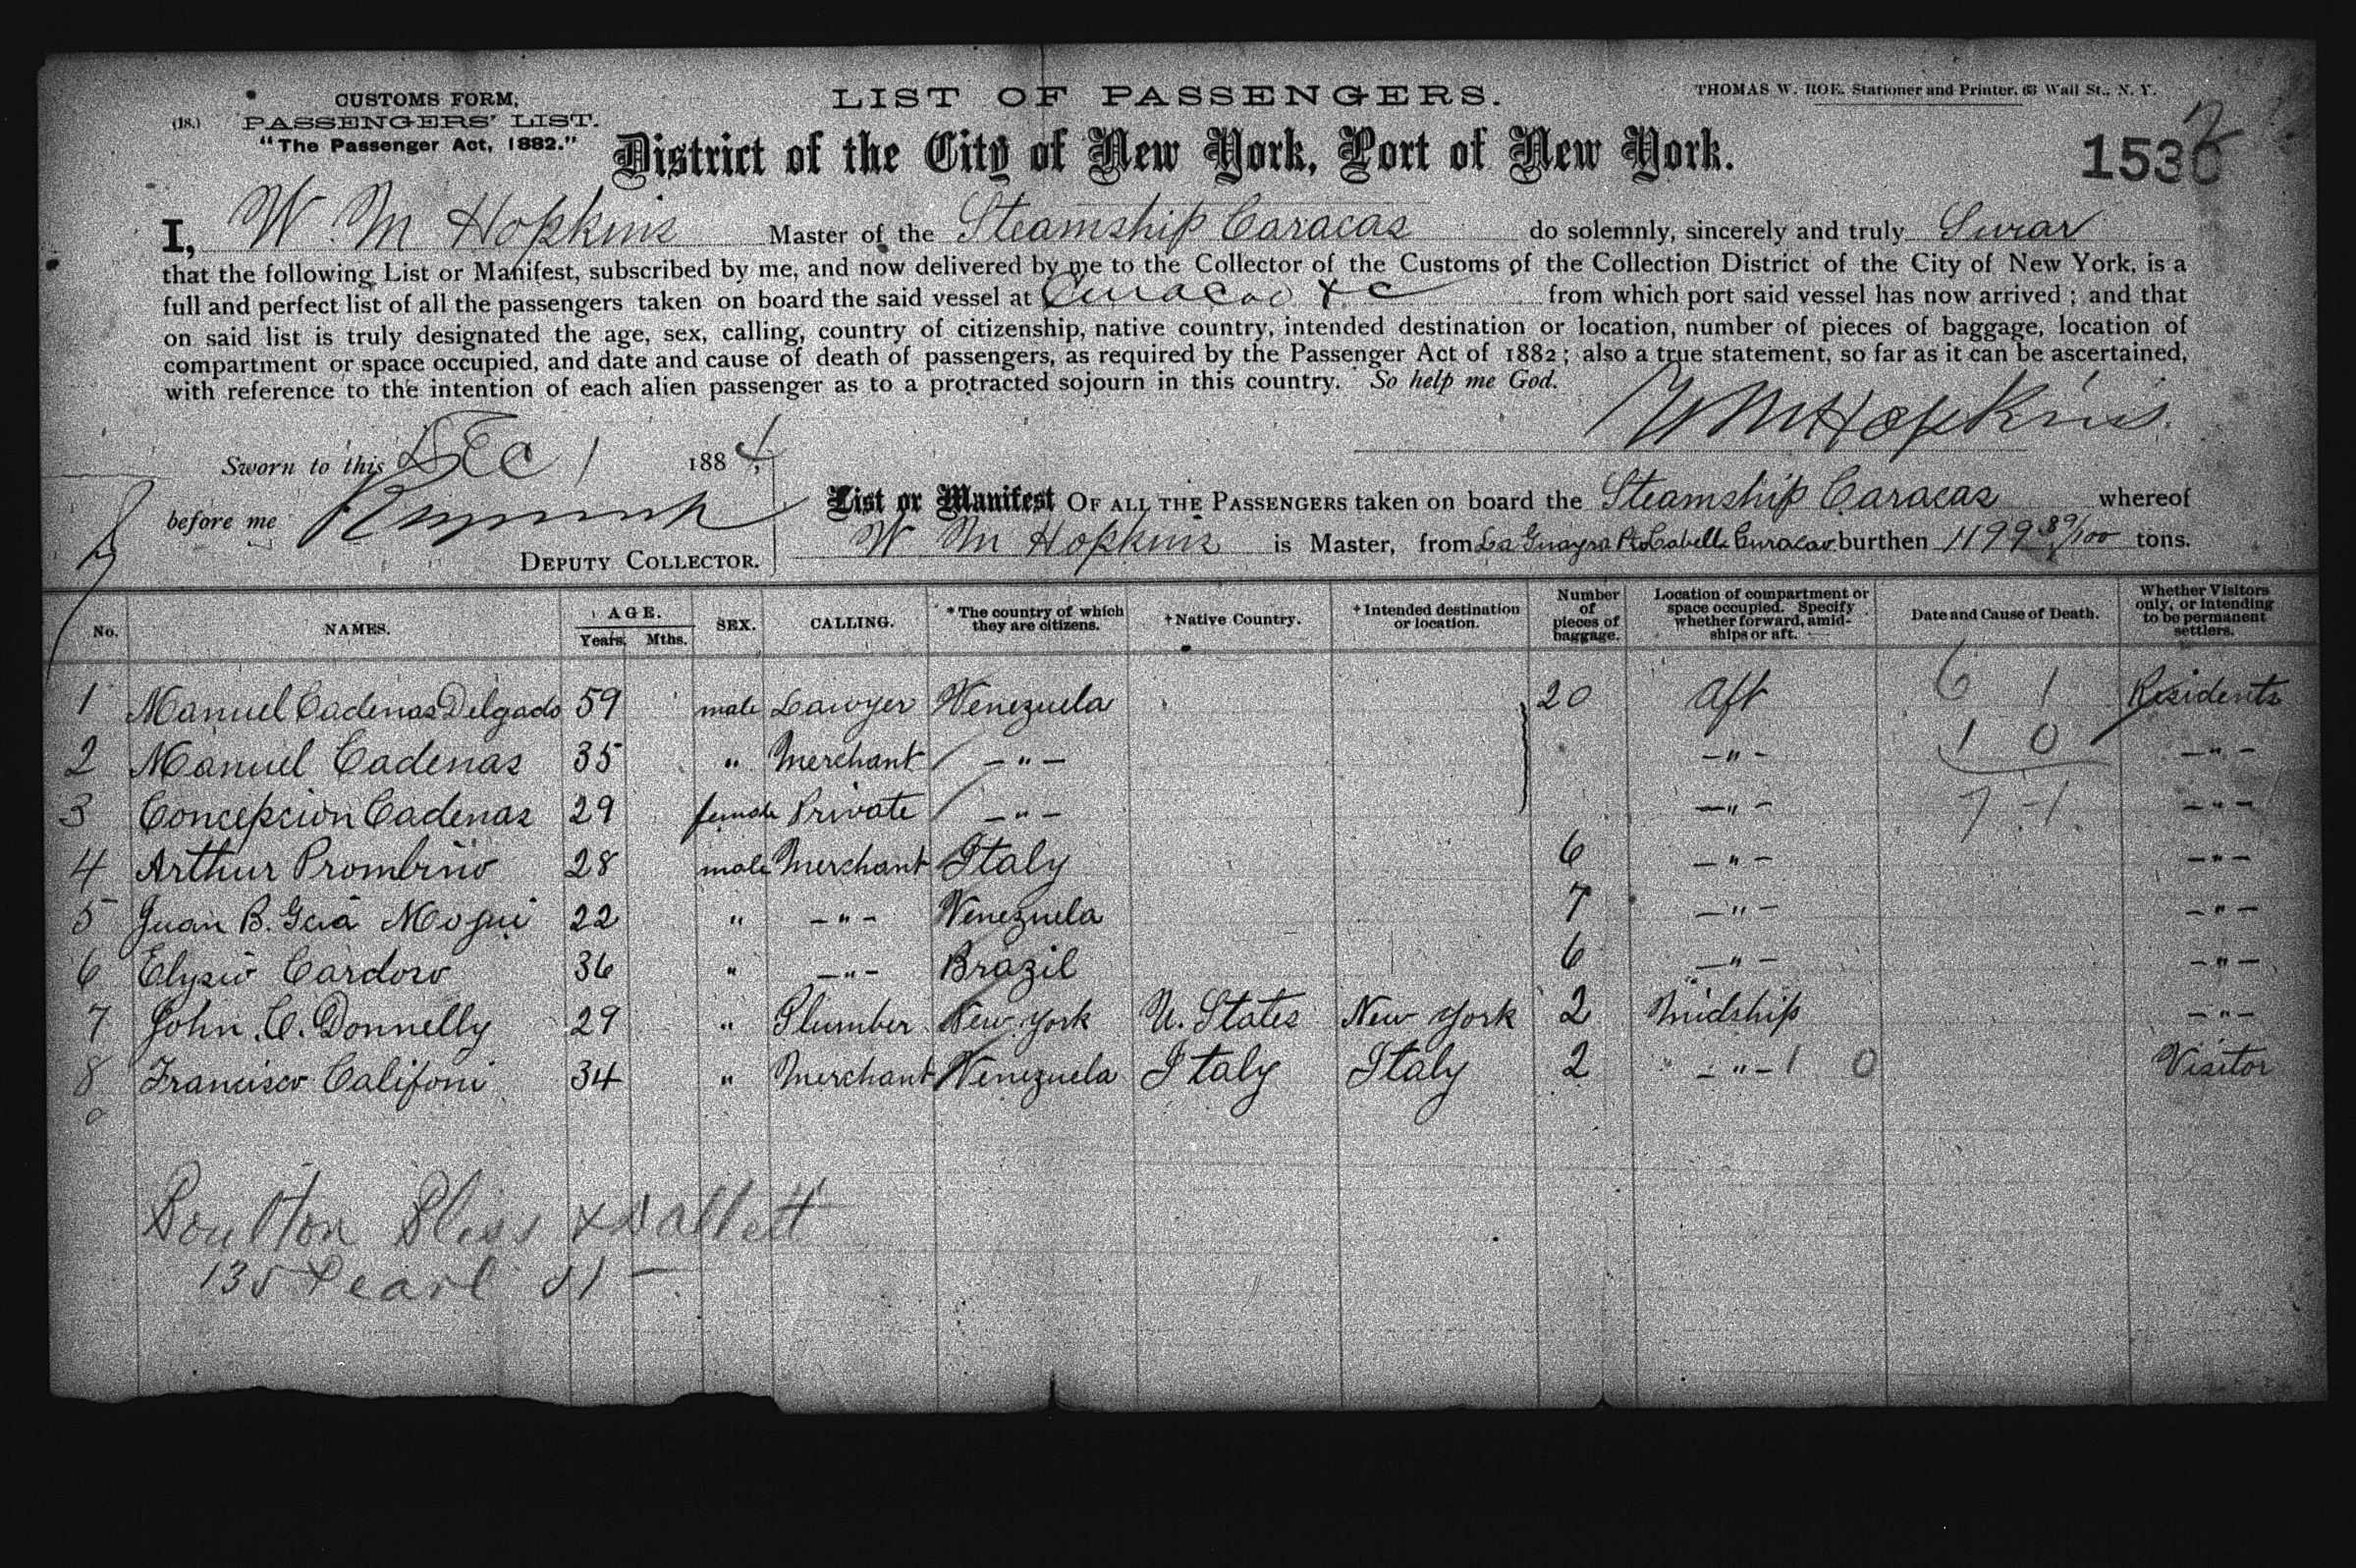 CUSTOMS FORM,
(18.) PASSENGERS' LIST.
"The Passenger Act, 1882."
LIST OF PASSENGERS.
THOMAS W. ROE. Stationer and Printer. 63 Wall St., N. Y.
District of the City of New York, Port of New York.
1530
2
I, W M Hopkins Master of the Steamship Caracas do solemnly, sincerely and truly Swear
that the following List or Manifest, subscribed by me, and now delivered by me to the Collector of the Customs of the Collection District of the City of New York, is a
full and perfect list of all the passengers taken on board the said vessel at Curacao & c from which port said vessel has now arrived; and that
on said list is truly designated the age, sex, calling, country of citizenship, native country, intended destination or location, number of pieces of baggage, location of
compartment or space occupied, and date and cause of death of passengers, as required by the Passenger Act of 1882; also a true statement, so far as it can be ascertained,
with reference to the intention of each alien passenger as to a protracted sojourn in this country. So help me God.
W M Hopkins
Sworn to this Dec 1 1884,
before me
DEPUTY COLLECTOR.
List or Manifest OF ALL THE PASSENGERS taken on board the Steamship Caracas whereof
W M Hopkins is Master, from La Guayra Pto Cabello Curacao burthen 1199 89/100 tons.
No. NAMES. AGE. Years. Mths. SEX. CALLING. *The country of which they are citizens. +Native Country. +Intended destination or location. Number of pieces of baggage. Location of compartment or space occupied. Specify whether forward, amidships or aft. Date and Cause of Death. Whether Visitors only, or intending to be permanent settlers.
1 Manuel Cadenas Delgado 59 male Lawyer Venezuela 20 Aft 6 1 Residents
2 Manuel Cadenas 35 " Merchant -"- -"- 1 0 -"-
3 Concepcion Cadenas 29 female Private -"- -"- 7 -1 -"-
4 Arthur Prombino 28 male Merchant Italy 6 -"- -"-
5 Juan B. Gcia Mogui 22 " -"- Venezuela 7 -"- -"-
6 Elysio Cardozo 36 " -"- Brazil 6 -"- -"-
7 John C. Donnelly 29 " Plumber New York U. States New York 2 Midship -"-
8 Francisco Califoni 34 " Merchant Venezuela Italy Italy 2 -"- 1 0 Visitor
Boulton Bliss & Dallett
135 Pearl St